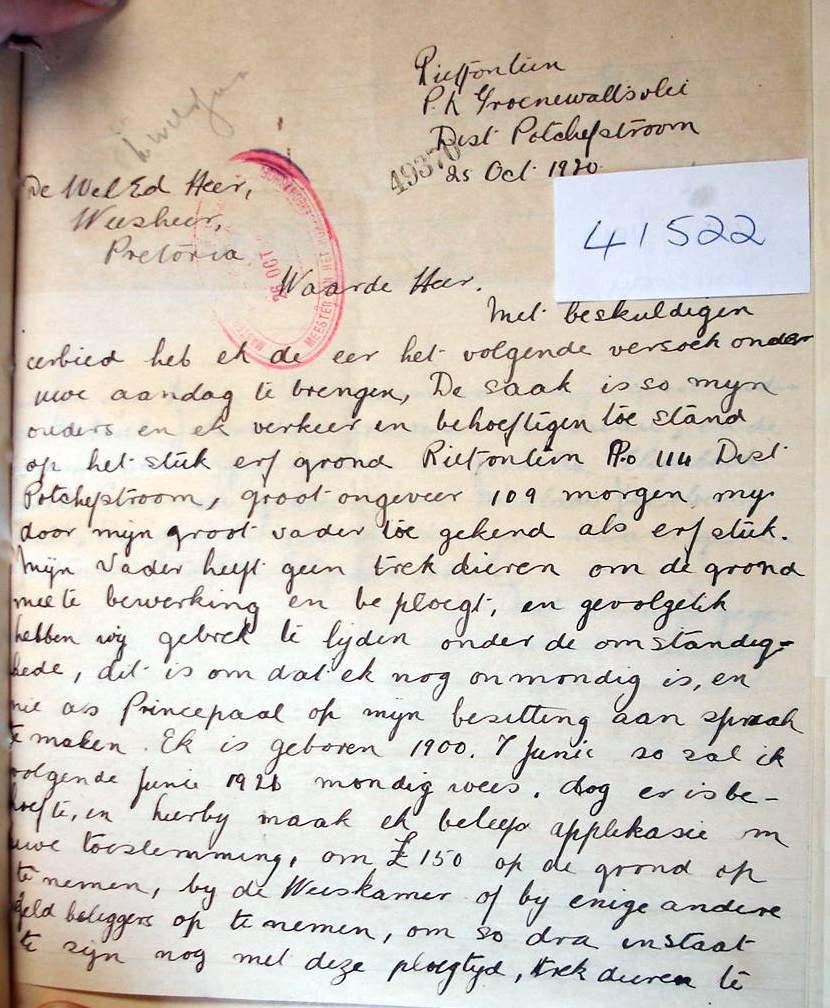 Rietfontein
P.K Groenewaldsvlei
Dist Potchefstroom
49370
25 Oct 1920
De Wel Ed Heer,
Weesheer,
Pretoria
26 OCT
MEESTER VAN HET
41522
Waarde Heer.
Met beskuldigen
eerbied heb ek de eer het volgende versoek onder
uwe aandag te brengen, De saak is so myn
ouders en ek verkeer en behoeftigen toe stand
op het stuk erf grond Rietfontein No 114 Dist
Potchefstroom, groot ongeveer 109 morgen, my
door mijn groot vader toe gekend als erf stuk.
Mijn Vader heeft geen trek dieren om de grond
mee te bewerking en be ploegt, en gevolgelik
hebben wij gebrek te lyden onder de omstandig=
hede, dit is om dat ek nog onmondig is, en
nie as Princepaal op mijn besitting aan spraak
te maken. Ek is geboren 1900. 7 Junie so zal ik
volgende Junie 1921 mondig wees. dog er is be-
hoefte, en hierby maak ek beleefd applekasie om
uwe toestemming, om £150 op de grond op
te nemen, by de Weeskamer of by enige andere
geld beleggers op te nemen, om so dra instaat
te zijn nog met deze ploegtyd, trek dieren te